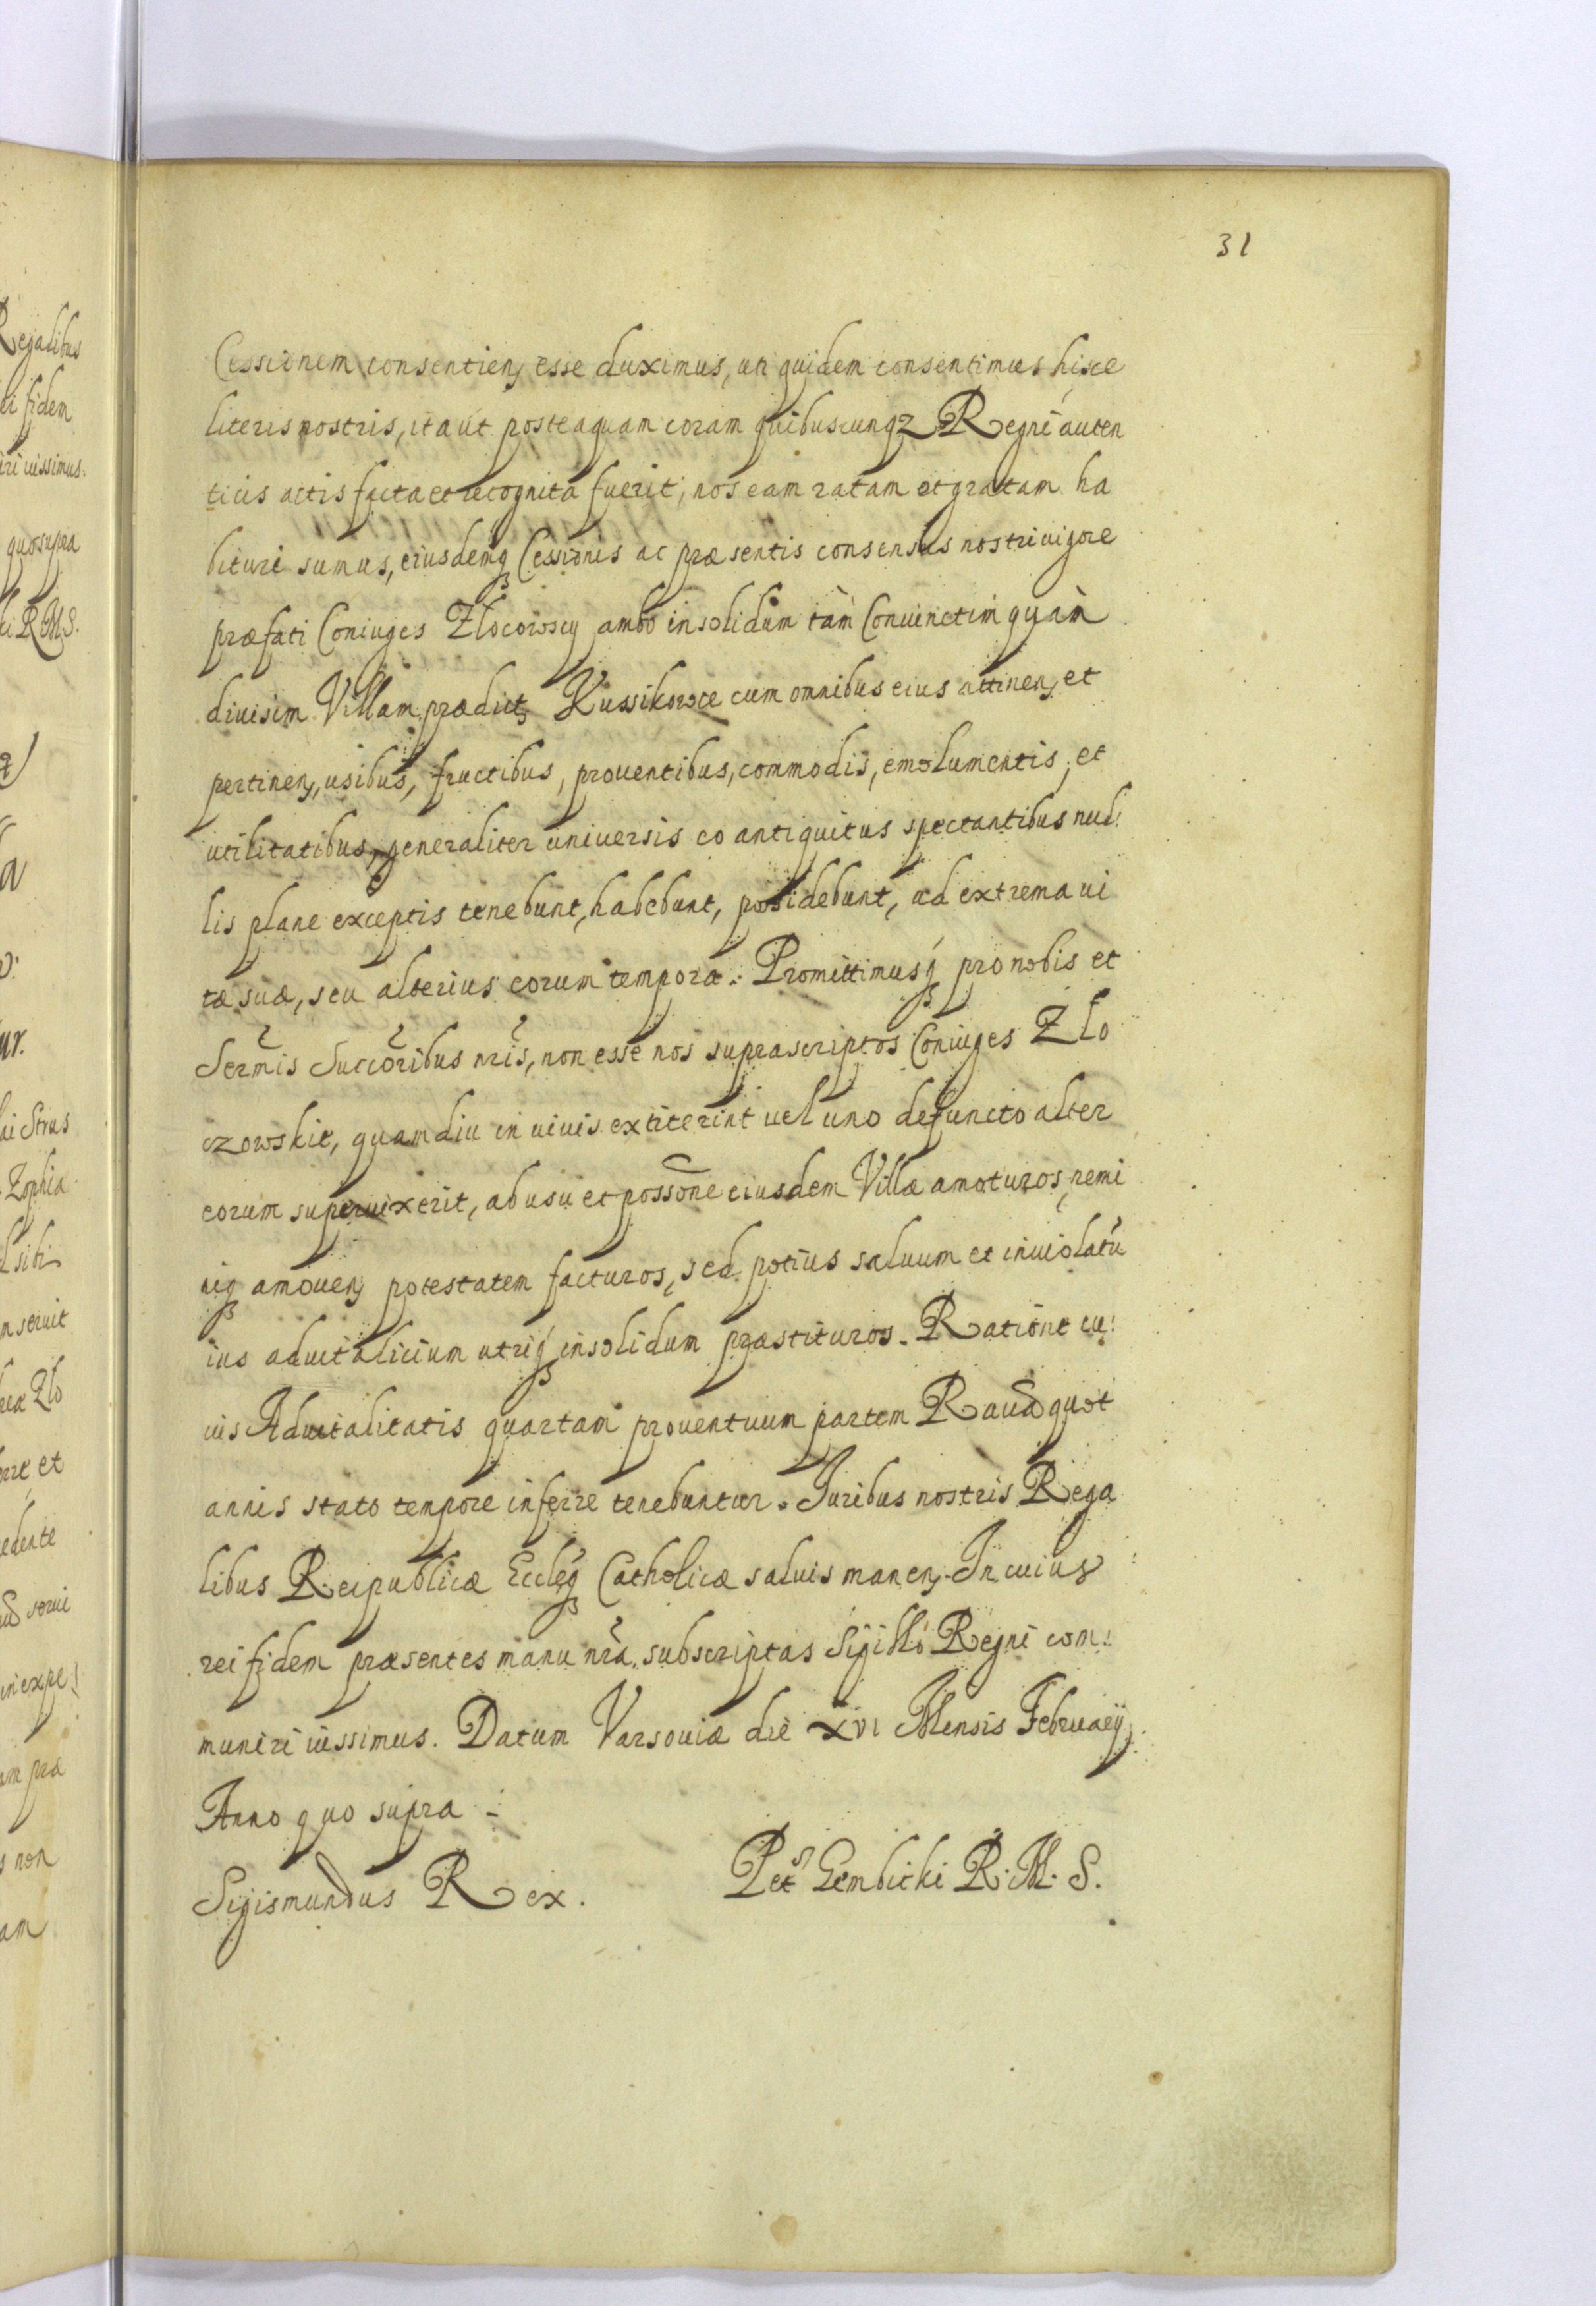 31
Cessionem consentien esse duximus, uti quidem consentimus hisce
literis nostris, ita ut posteaquam coram quibuscunqz Regni auten
ticis actis facta et recognita fuerit, nos eam ratam et gratam ha
bituri sumus, eiusdemq Cessionis ac præsentis consensus nostri uigore
præfati Coniuges Zloczowscy ambo insolidum tàm Conuinctim quàm
diuisim Villam prædict Kussikowce cum omnibus eius attinen et
pertinen, usibus, fructibus, prouentibus, commodis, emolumentis, et
utilitatibus, generaliter uniuersis eo antiquitus spectantibus nul:
lis plane exceptis tenebunt, habebunt, possidebunt, ad extrema ui
tæ suæ, seu alterius eorum tempora. Promittimusq pro nobis et
Sermis Succoribus nris, non esse nos suprascriptos Coniuges Zlo
czowskie, quamdiu in uiuis extiterint uel uno defuncto alter
eorum superuixerit, ab usu et possone eiusdem Villæ amoturos, nemi
niq amouen potestatem facturos, sed potius saluum et inuiolatū
ius aduitalicium utriq insolidum præstituros. Ratione cu:
ius Aduitalitatis quartam prouentuum partem Rauã quot
annis stato tempore inferre tenebuntur. Iuribus nostris Rega
libus Reipublicæ Eccleq Catholicæ saluis manen. In cuius
rei fidem præsentes manu nra subscriptas Sigillo Regni com:
muniri iussimus. Datum Varsouiæ die XVI Mensis Februarij
Anno quo supra
Sigismundus Rex. Pet Gembicki R. M. S.
Regalibus
fidem
iussimus.
quo supra
R M S.
Strus
Zophia
sibi
Zlo
et
non